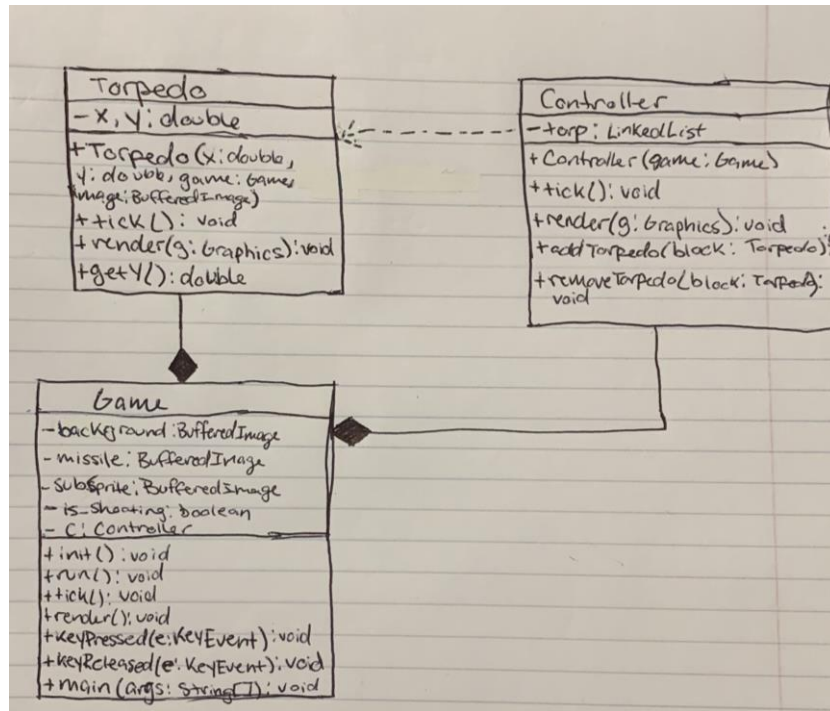 Torpedo
- x, y: double
+ Torpedo(x: double,
y: double, game: Game,
image: BufferedImage)
+ tick(): void
+ render(g: Graphics): void
+ getY(): double
Controller
- torp: LinkedList
+ Controller(game: Game)
+ tick(): void
+ render(g: Graphics): void
+ addTorpedo(block: Torpedo):
+ removeTorpedo(block: Torpedo):
void
Game
- background: BufferedImage
- missile: BufferedImage
- subSprite: BufferedImage
- is_shooting: boolean
- C: Controller
+ init(): void
+ run(): void
+ tick(): void
+ render(): void
+ keyPressed(e: KeyEvent): void
+ keyReleased(e: KeyEvent): void
+ main(args: String[]): void